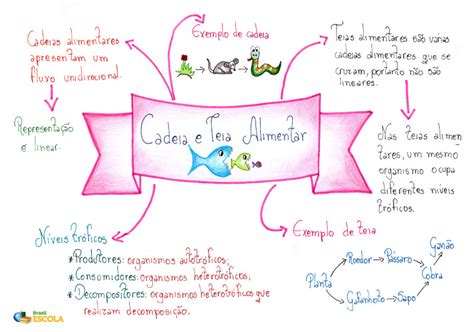 Cadeias alimentares
apresentam um
fluxo unidirecional.
Representação
é linear.
Exemplo de cadeia
Teias alimentares são várias
cadeias alimentares que se
cruzam, portanto não são
lineares.
Nas teias alimen
tares, um mesmo
organismo ocupa
diferentes níveis
tróficos.
Cadeia e Teia Alimentar
Níveis tróficos
*Produtores: organismos autotróficos;
*Consumidores: organismos heterotróficos;
*Decompositores: organismos heterotróficos que
realizam decomposição.
Exemplo de teia
Planta
Roedor
Pássaro
Gavião
Cobra
Gafanhoto
Sapo
Brasil
ESCOLA